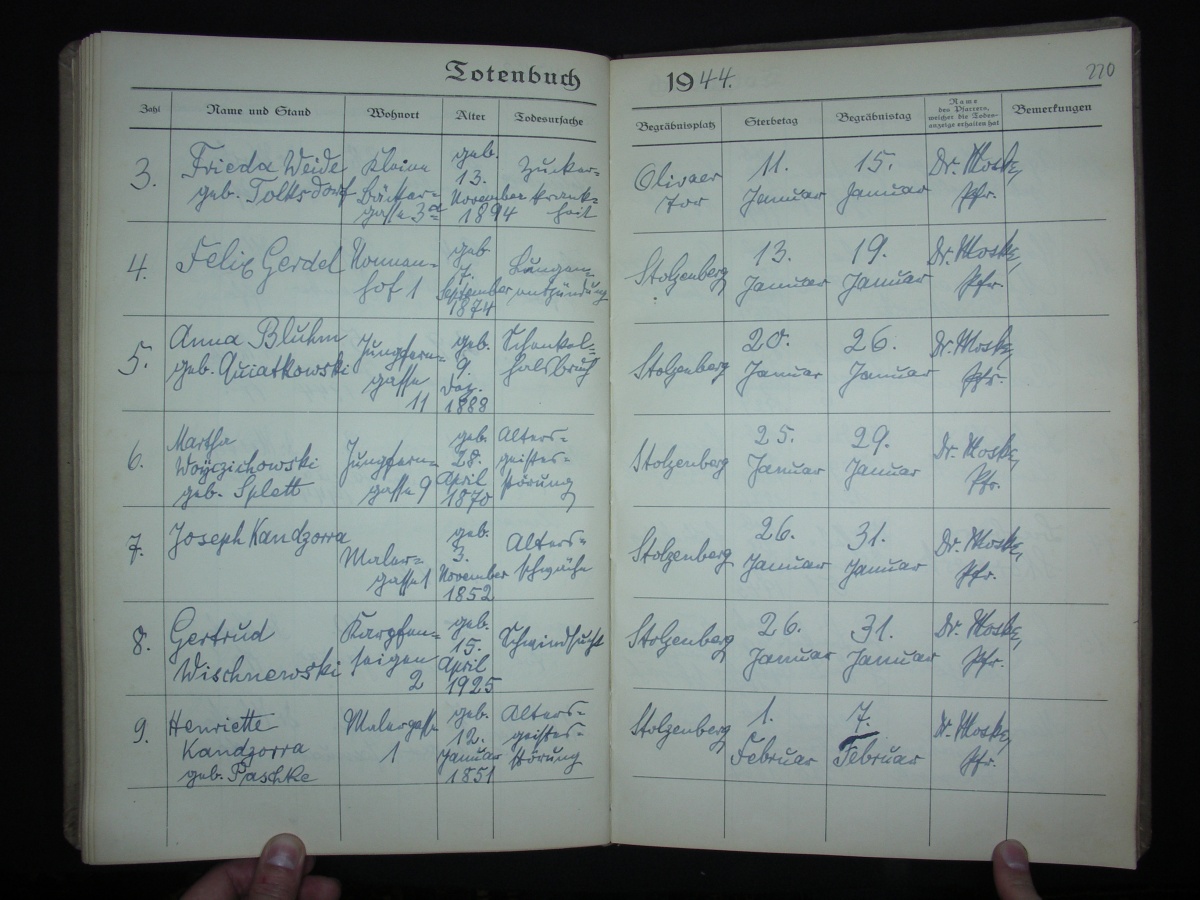 Totenbuch
1944.
270
Zahl
Name und Stand
Wohnort
Alter
Todesursache
Begräbnisplatz
Sterbetag
Begräbnistag
Name
des Pfarrers,
welcher die Todes-
anzeige erhalten hat
Bemerkungen
3.
Frieda Weide
geb. Tolksdorf
Kleine
Bäcker-
gasse 3a
geb.
13.
November
1894
Zucker-
krank-
heit
Olivaer
Tor
11.
Januar
15.
Januar
Dr. Moske,
Pfr.
4.
Felix Gerdel
Nonnen-
hof 1
geb
7.
September
1874
Lungen-
entzündung
Stolzenberg
13.
Januar
19.
Januar
Dr. Moske,
Pfr.
5.
Anna Bluhm
geb. Quiatkowski
Jungfern-
gasse
11
geb.
9.
Dez.
1888
Schenkel-
halsbruch
Stolzenberg
20.
Januar
26.
Januar
Dr. Moske,
Pfr.
6.
Martha
Woyczichowski
geb. Splett
Jungfern-
gasse 9
geb.
28.
April
1870
Alters-
geistes-
störung
Stolzenberg
25.
Januar
29.
Januar
Dr. Moske,
Pfr.
7.
Joseph Kandzorra
Maler-
gasse 1
geb.
3.
November
1852
Alters-
schwäche
Stolzenberg
26.
Januar
31.
Januar
Dr. Moske,
Pfr.
8.
Gertrud
Wischnewski
Karpfen-
seigen
2
geb.
15.
April
1925
Schwindsucht
Stolzenberg
26.
Januar
31.
Januar
Dr. Moske,
Pfr.
9.
Henriette
Kandzorra
geb. Paschke
Malergasse
1
geb.
12.
Januar
1851
Alters-
geistes-
störung
Stolzenberg
1.
Februar
7.
Februar
Dr. Moske,
Pfr.